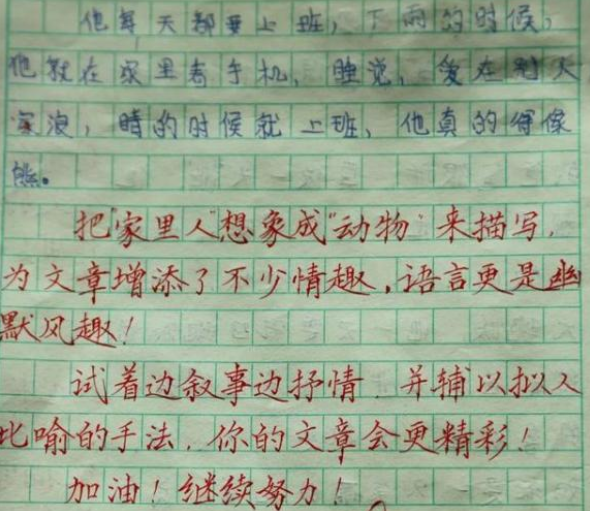 他每天都要上班，下雨的时候，
他就在家里看手机、睡觉，爱在别人
，晴的时候就上班、他真的得像
熊。
把"家里人"想象成"动物"来描写，
为文章增添了不少情趣，语言更是幽
默风趣！
试着边叙事边抒情 并辅以拟人
比喻的手法，你的文章会更精彩！
加油！继续努力！